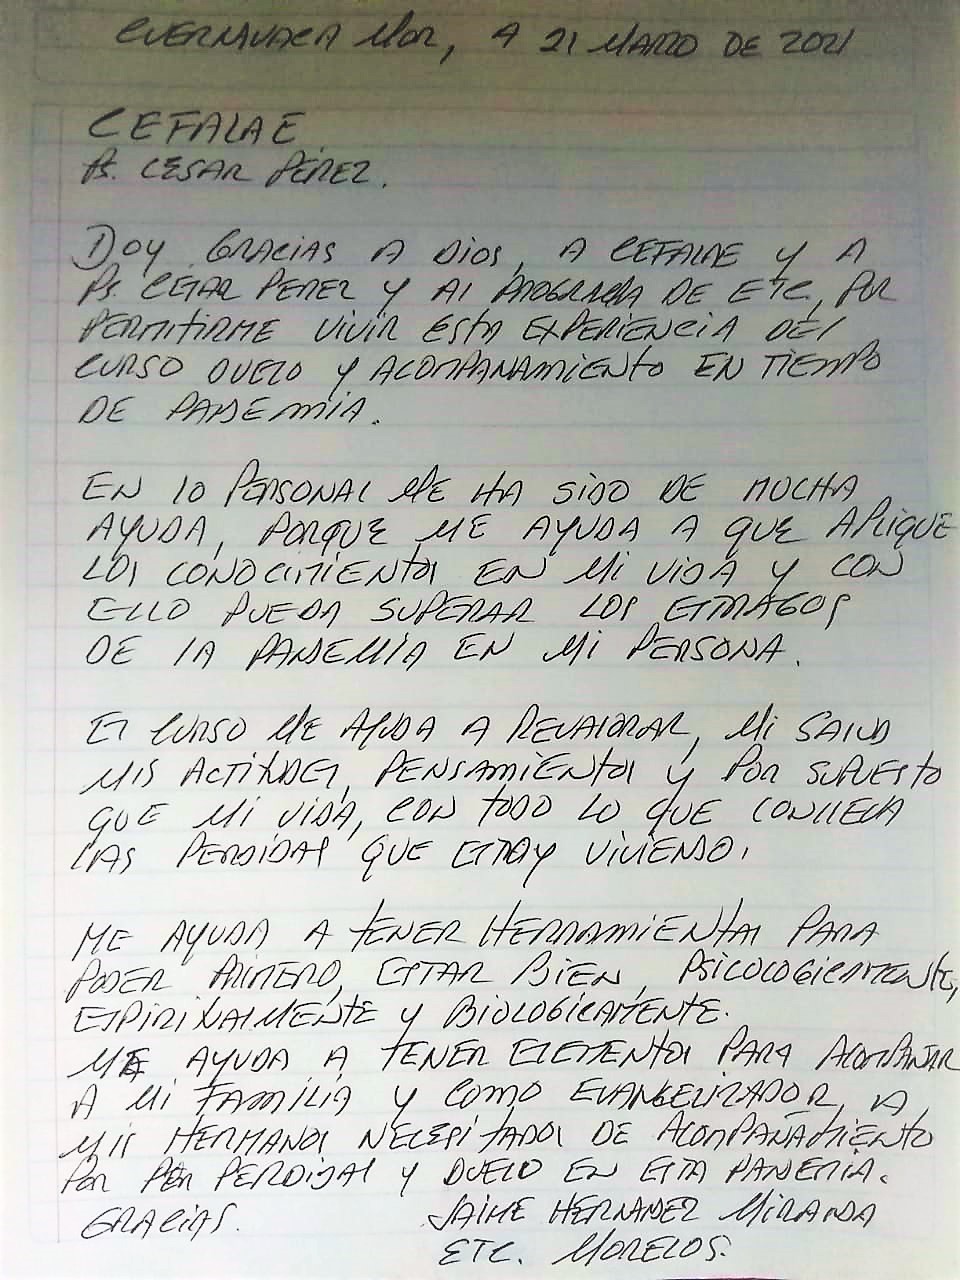 CUERNAVACA MOR, A 21 MARZO DE 2021
CEFALAE
Ps. CESAR PÉREZ.
DOY GRACIAS A DIOS, A CEFALAE Y A
Ps. CESAR PEREZ Y Al PROGRAMA DE ETC, POR
PERMITIRME VIVIR ESTA EXPERIENCIA DEl
CURSO DUELO Y ACOMPANAMIENTO EN TIEMPO
DE PANDEMIA.
EN lO PERSONAL ME HA SIDO DE MUCHA
AYUDA, PORQUE ME AYUDA A QUE APLIQUE
LOS CONOCIMIENTOS EN MI VIDA Y CON
ELLO PUEDA SUPERAR LOS ESTRAGOS
DE lA PANDEMIA EN MI PERSONA.
El CURSO ME AYUDA A REVALORAR, MI SALUD
MIS ACTITUDES, PENSAMIENTOS Y POR SUPUESTO
QUE MI VIDA, CON TODO LO QUE CONLLEVA
LAS PERDIDAS QUE ESTOY VIVIENDO.
ME AYUDA A TENER HERRAMIENTAS PARA
PODER PRIMERO, ESTAR BIEN, PSICOLOGICAMENTE,
ESPIRITUALMENTE Y BIOLOGICAMENTE.
ME AYUDA A TENER ELEMENTOS PARA ACOMPAÑAR
A MI FAMILIA Y COMO EVANGELIZADOR, A
MIS HERMANOS NECESITADOS DE ACOMPAÑAMIENTO
POR POR PERDIDAS Y DUELO EN ESTA PANDEMIA.
GRACIAS. JAIME HERNANDEZ MIRANDA
ETC. MORELOS.